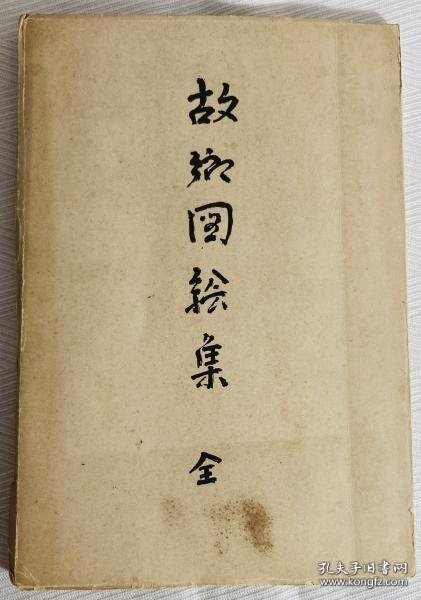 故郷図絵集 全
孔夫子旧书网
www.kongfz.com